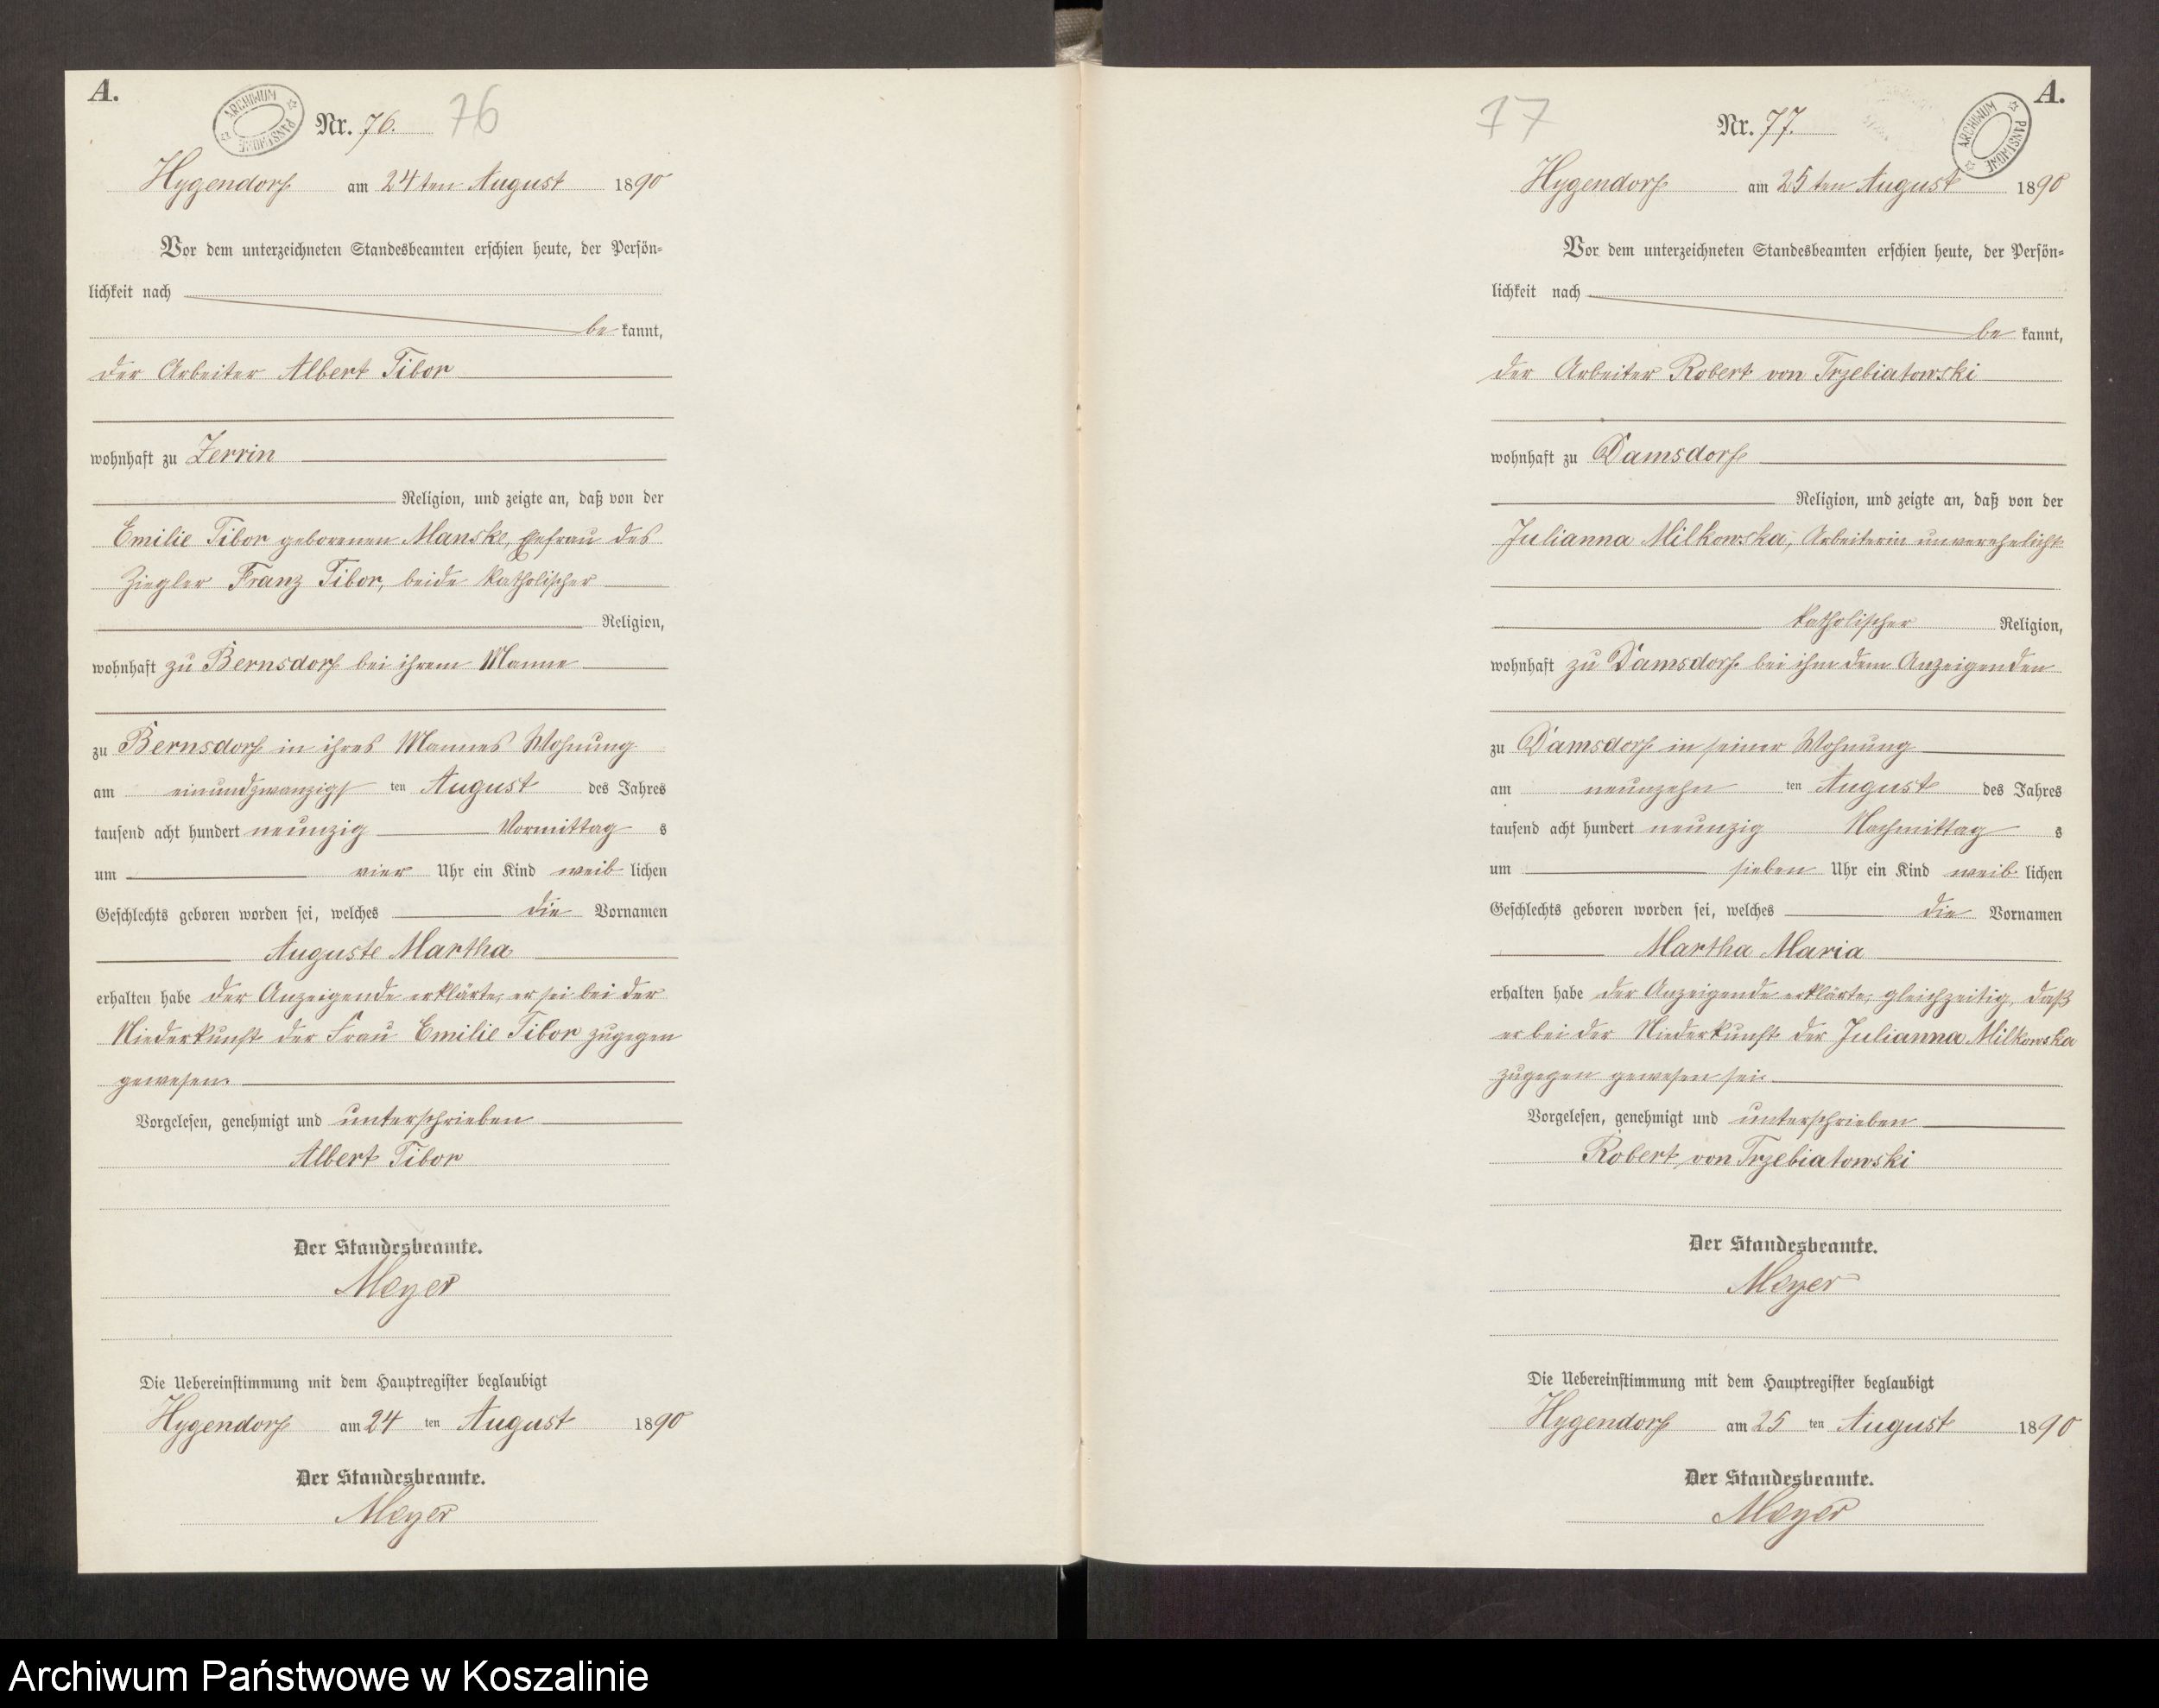 A.
ARCHIWUM PAŃSTWOWE
Nr. 76. 76
Hygendorf am 24ten August 1890
Vor dem unterzeichneten Standesbeamten erschien heute, der Persön-
lichkeit nach
be kannt,
der Arbeiter Albert Tibor
wohnhaft zu Zerrin
Religion, und zeigte an, daß von der
Emilie Tibor geborenen Manske, Ehefrau des
Ziegler Franz Tibor, beide katholischer
Religion,
wohnhaft zu Bernsdorf bei ihrem Manne
zu Bernsdorf in ihres Mannes Wohnung
am einundzwanzigst ten August des Jahres
tausend acht hundert neunzig Vormittag s
um vier Uhr ein Kind weib lichen
Geschlechts geboren worden sei, welches die Vornamen
Auguste Martha
erhalten habe der Anzeigende erklärte, er sei bei der
Niederkunft der Frau Emilie Tibor zugegen
gewesen.
Vorgelesen, genehmigt und unterschrieben
Albert Tibor
Der Standesbeamte.
Meyer
Die Uebereinstimmung mit dem Hauptregister beglaubigt
Hygendorf am 24 ten August 1890
Der Standesbeamte.
Meyer
A.
77 Nr. 77.
ARCHIWUM PAŃSTWOWE
Hygendorf am 25ten August 1890
Vor dem unterzeichneten Standesbeamten erschien heute, der Persön-
lichkeit nach
be kannt,
der Arbeiter Robert von Trzebiatowski
wohnhaft zu Damsdorf
Religion, und zeigte an, daß von der
Julianna Milkowska, Arbeiterin unverehelicht
katholischer Religion,
wohnhaft zu Damsdorf bei ihm dem Anzeigenden
zu Damsdorf in seiner Wohnung
am neunzehn ten August des Jahres
tausend acht hundert neunzig Nachmittag s
um sieben Uhr ein Kind weib lichen
Geschlechts geboren worden sei, welches die Vornamen
Martha Maria
erhalten habe der Anzeigende erklärte, gleichzeitig, daß
er bei der Niederkunft der Julianna Milkowska
zugegen gewesen sei.
Vorgelesen, genehmigt und unterschrieben
Robert von Trzebiatowski
Der Standesbeamte.
Meyer
Die Uebereinstimmung mit dem Hauptregister beglaubigt
Hygendorf am 25 ten August 1890
Der Standesbeamte.
Meyer
Archiwum Państwowe w Koszalinie